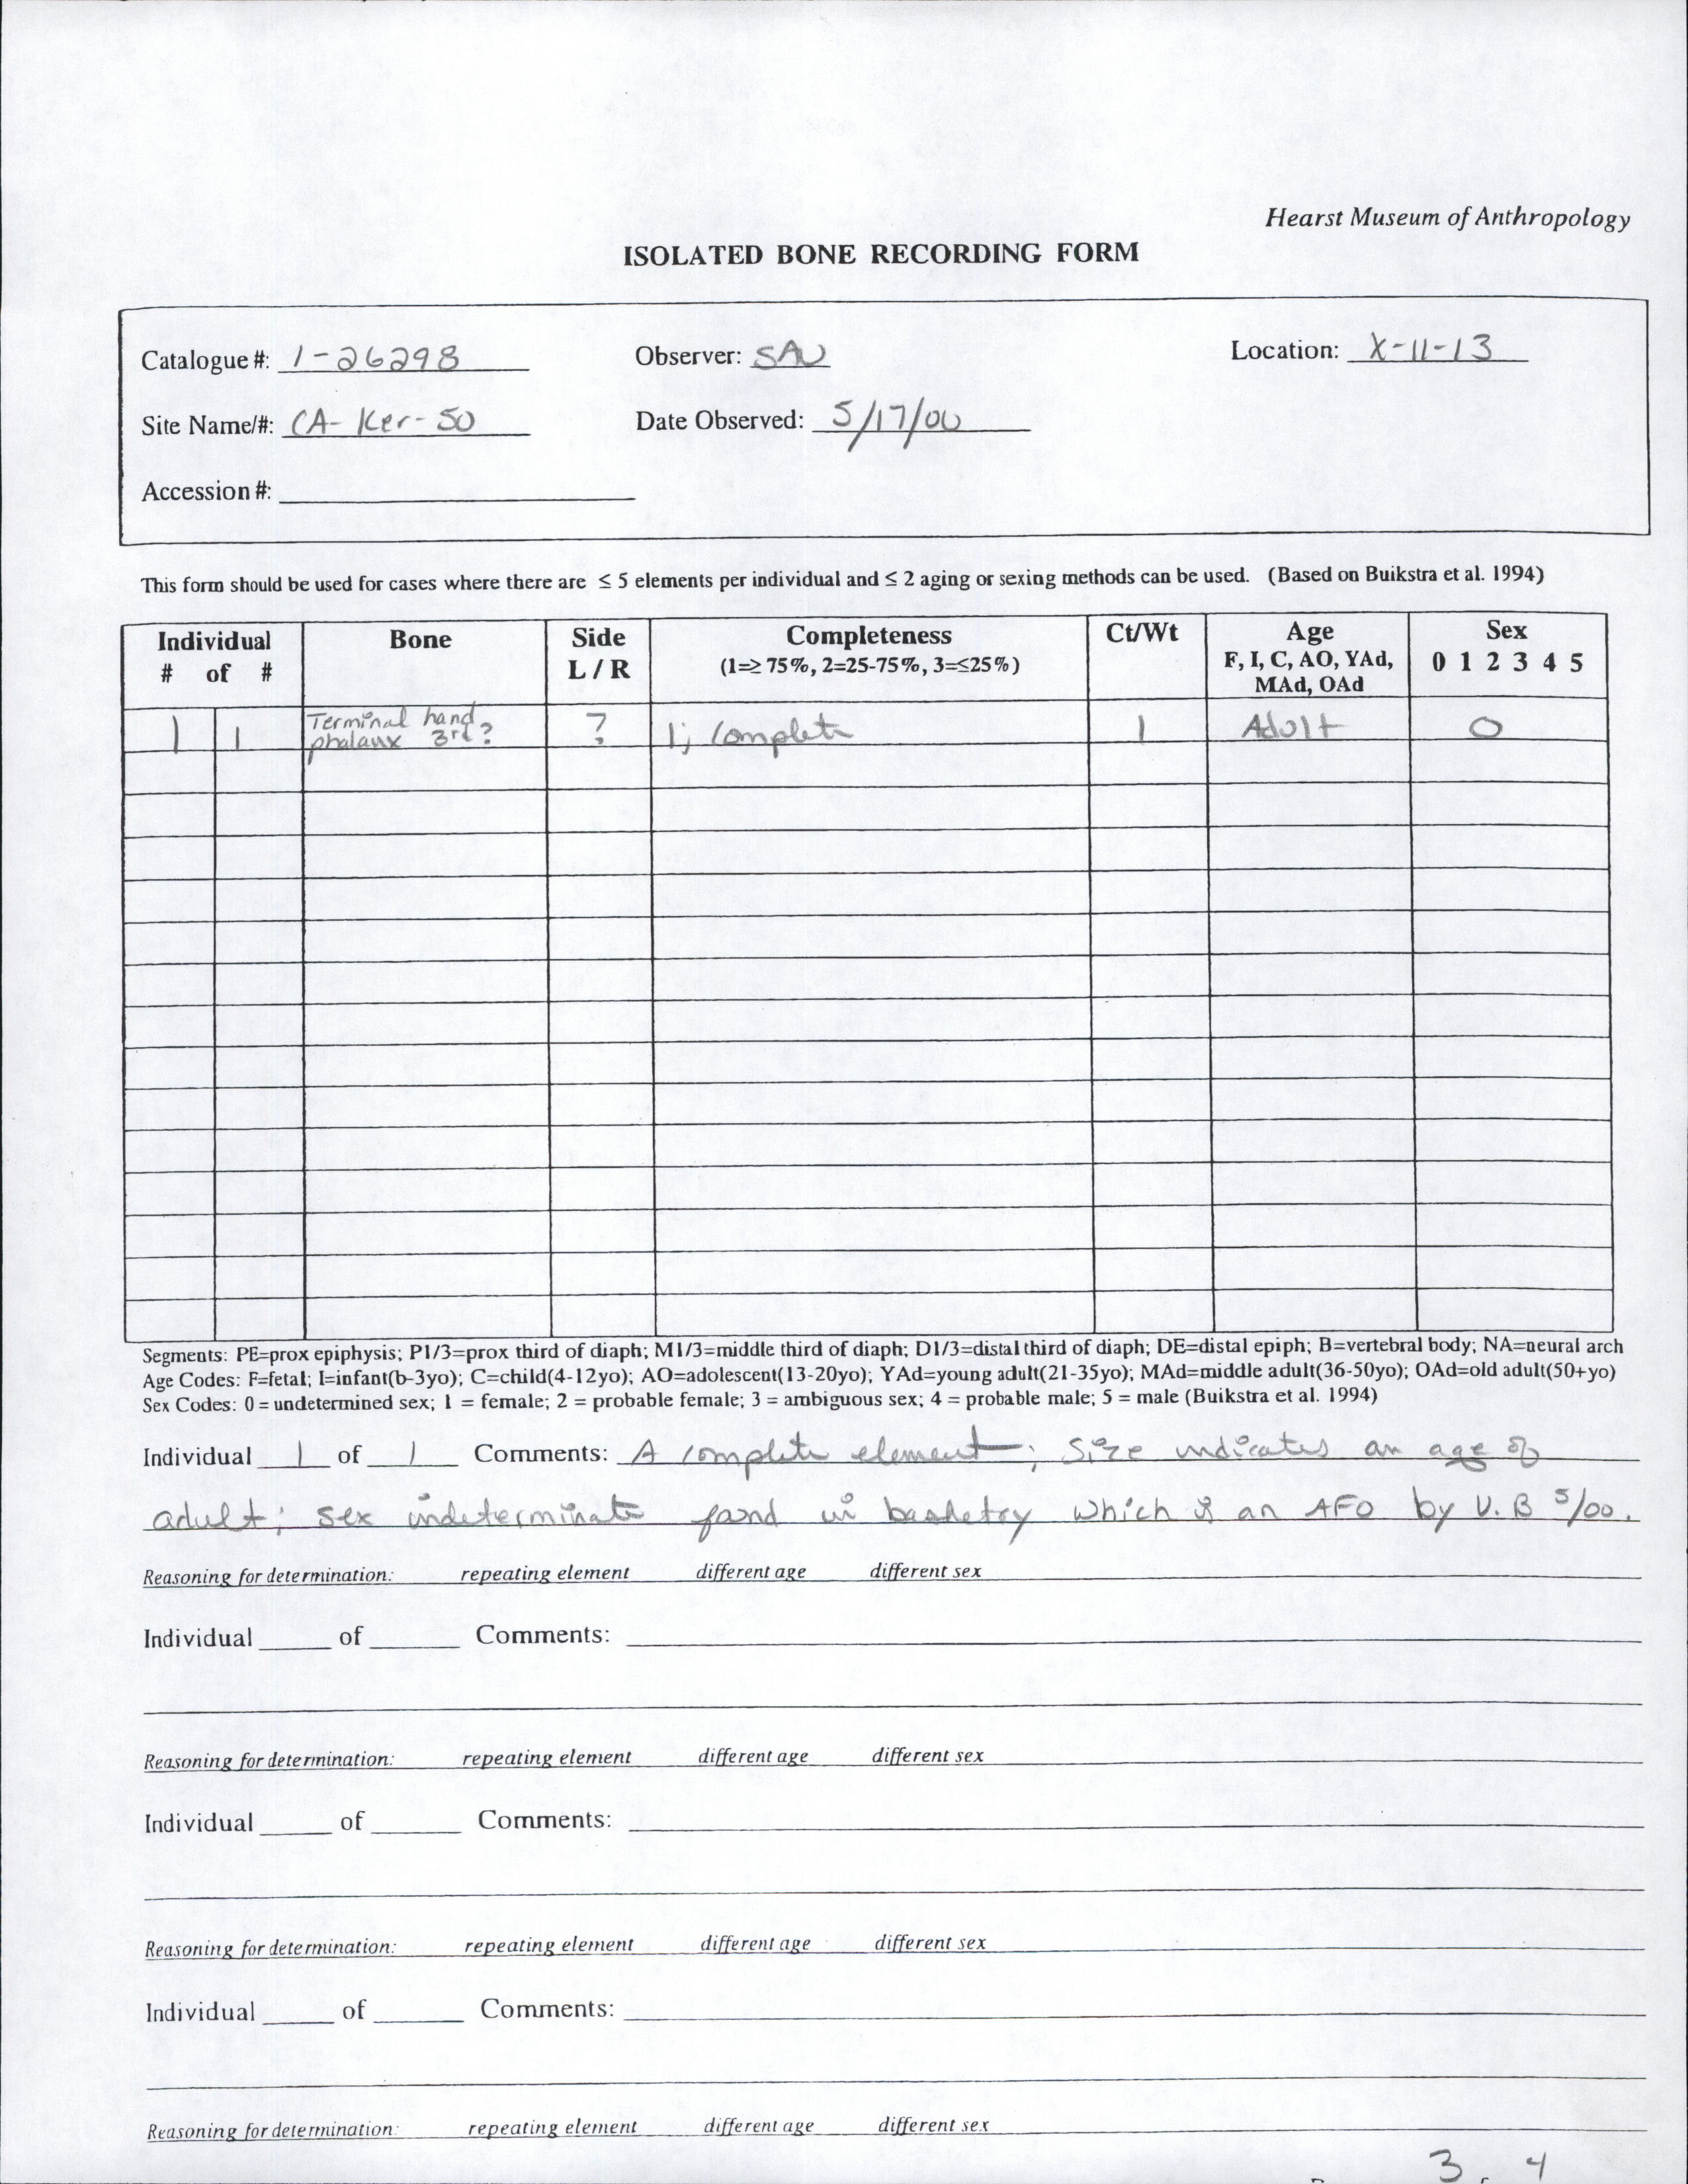 Hearst Museum of Anthropology
ISOLATED BONE RECORDING FORM
Catalogue #: 1-26298 Observer: SAW Location: X-11-13
Site Name/#: CA-Ker-50 Date Observed: 5/17/00
Accession #:
This form should be used for cases where there are ≤ 5 elements per individual and ≤ 2 aging or sexing methods can be used. (Based on Buikstra et al. 1994)
Individual Bone Side Completeness Ct/Wt Age Sex
# of # L / R (1=≥ 75%, 2=25-75%, 3=≤25%) F, I, C, AO, YAd, 0 1 2 3 4 5
MAd, OAd
1 1 Terminal hand phalanx 3rd? ? 1; complete 1 Adult 0
Segments: PE=prox epiphysis; P1/3=prox third of diaph; M1/3=middle third of diaph; D1/3=distal third of diaph; DE=distal epiph; B=vertebral body; NA=neural arch
Age Codes: F=fetal; I=infant(b-3yo); C=child(4-12yo); AO=adolescent(13-20yo); YAd=young adult(21-35yo); MAd=middle adult(36-50yo); OAd=old adult(50+yo)
Sex Codes: 0 = undetermined sex; 1 = female; 2 = probable female; 3 = ambiguous sex; 4 = probable male; 5 = male (Buikstra et al. 1994)
Individual 1 of 1 Comments: A complete element; Size indicates an age of
adult; sex indeterminate found in basketry which is an AFO by V.B 5/00.
Reasoning for determination: repeating element different age different sex
Individual of Comments:
Reasoning for determination: repeating element different age different sex
Individual of Comments:
Reasoning for determination: repeating element different age different sex
Individual of Comments:
Reasoning for determination: repeating element different age different sex
3 4